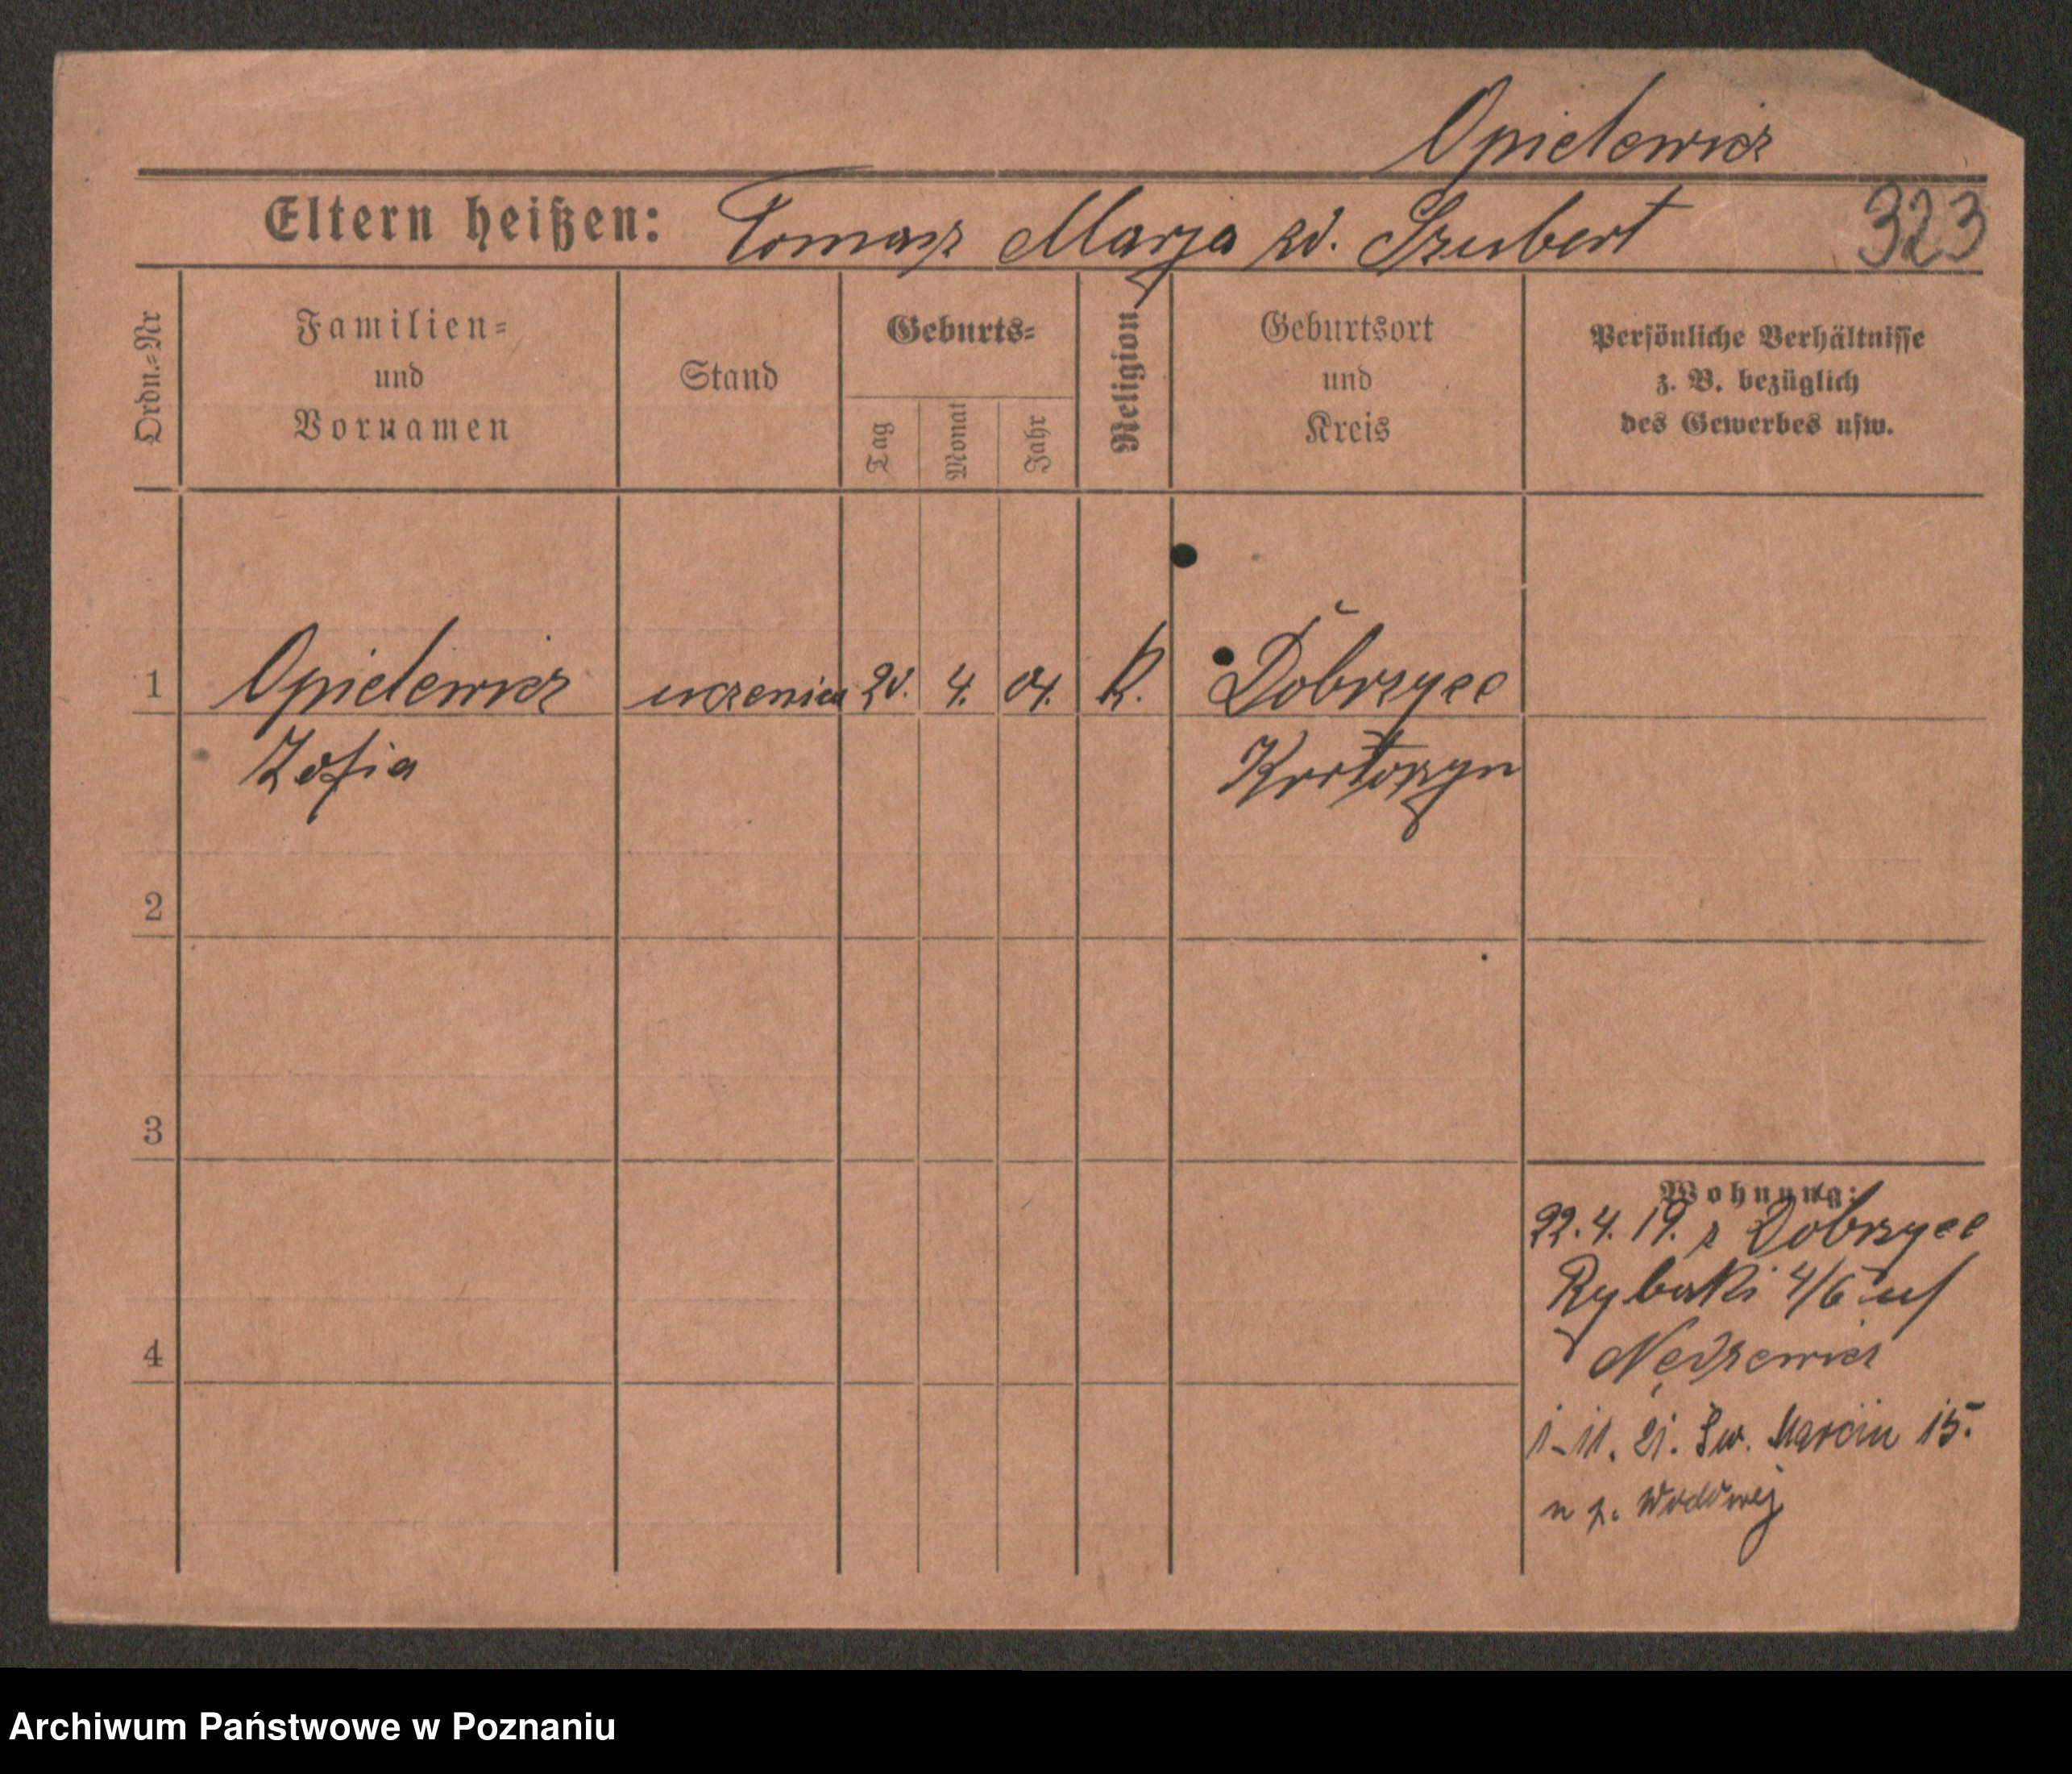 Opielewicz
Eltern heißen: Tomasz Marja zd. Szubert 323
Ordn.-Nr
Familien-
und
Vornamen
Stand
Geburts-
Tag
Monat
Jahr
Religion
Geburtsort
und
Kreis
Persönliche Verhältnisse
z. B. bezüglich
des Gewerbes usw.
1 Opielewicz uczenica 20. 4. 04. K. Dobrzyce
Zofia Krotoszyn
2
3
4
Wohnung:
22. 4. 19. z Dobrzyce
Rybaki 4/6 u/
Nędzewicz
1-11. 21. Św. Marcin 15.
u p. Wodowej
Archiwum Państwowe w Poznaniu